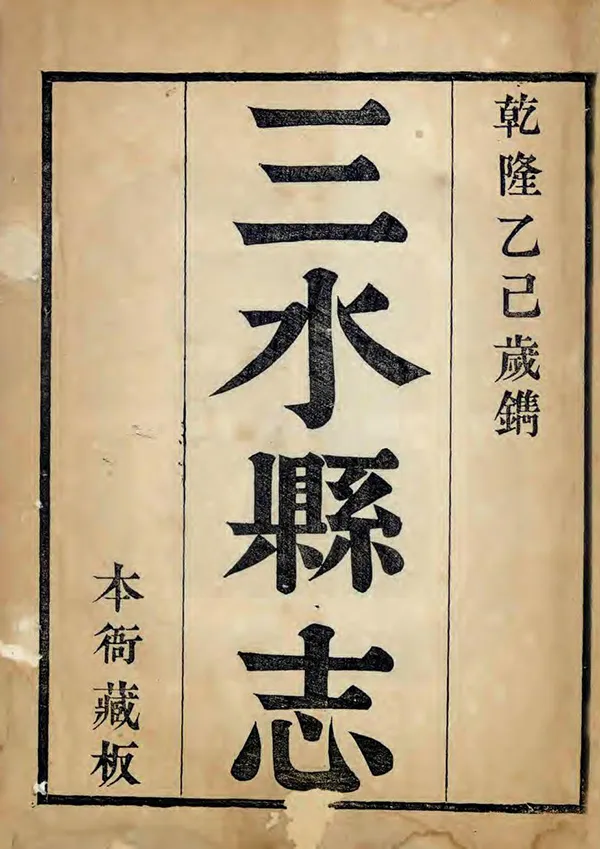 乾隆乙己歲鐫
三水縣志
本衙藏板